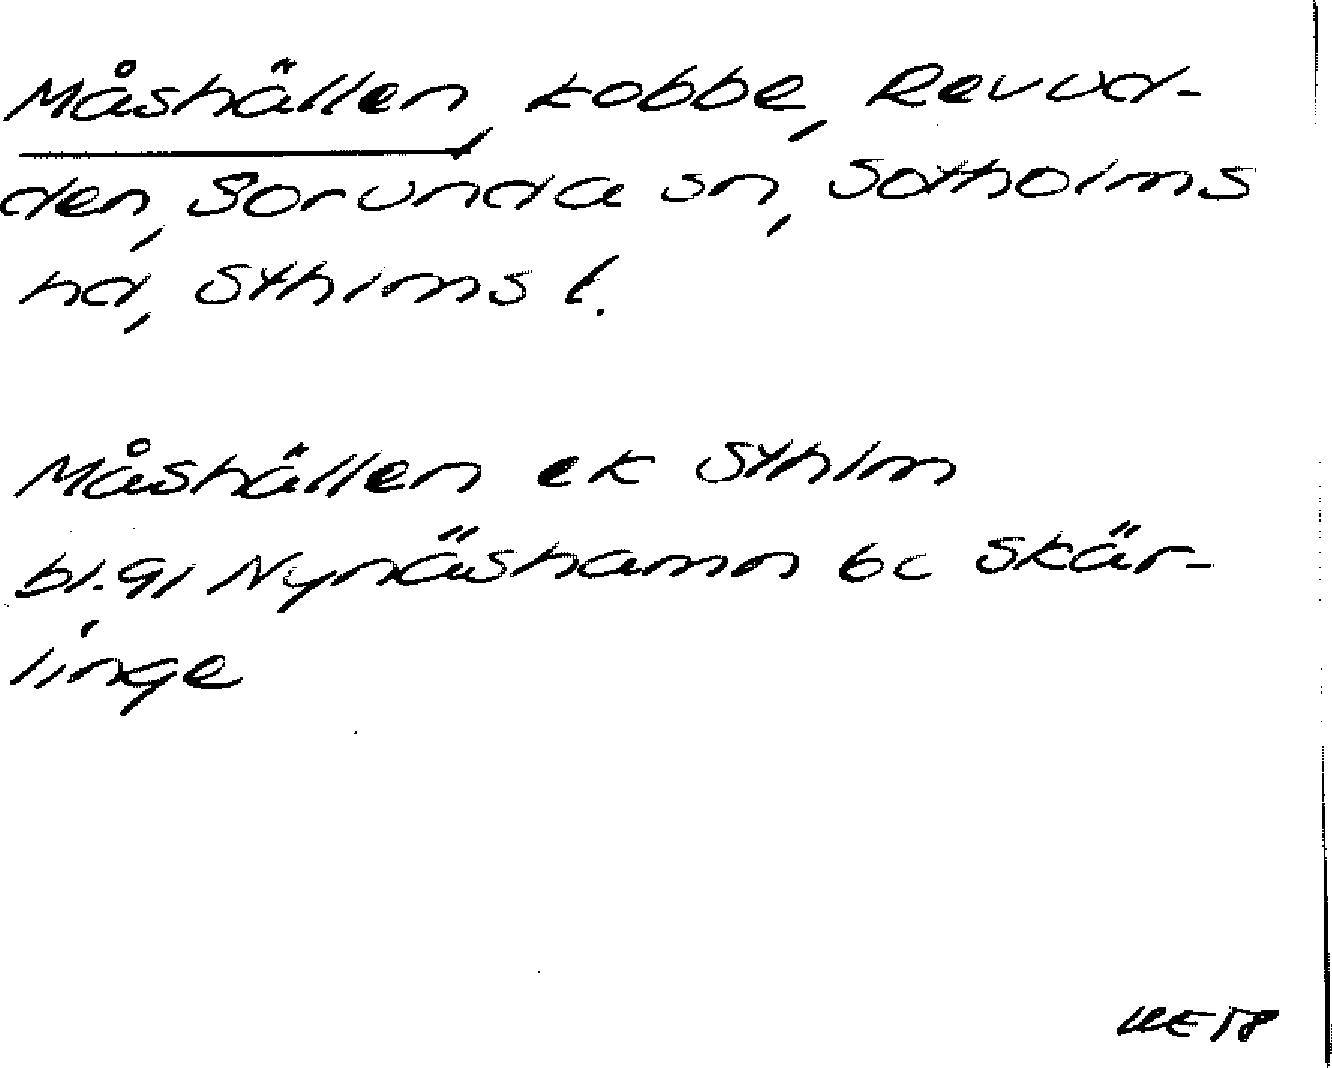 Måshällen, kobbe, Revud-
den, Sorunda sn, Sotholms
hd, Sthlms l.
Måshällen ek Sthlm
bl. 91 Nynäshamn bc Skär-
linge